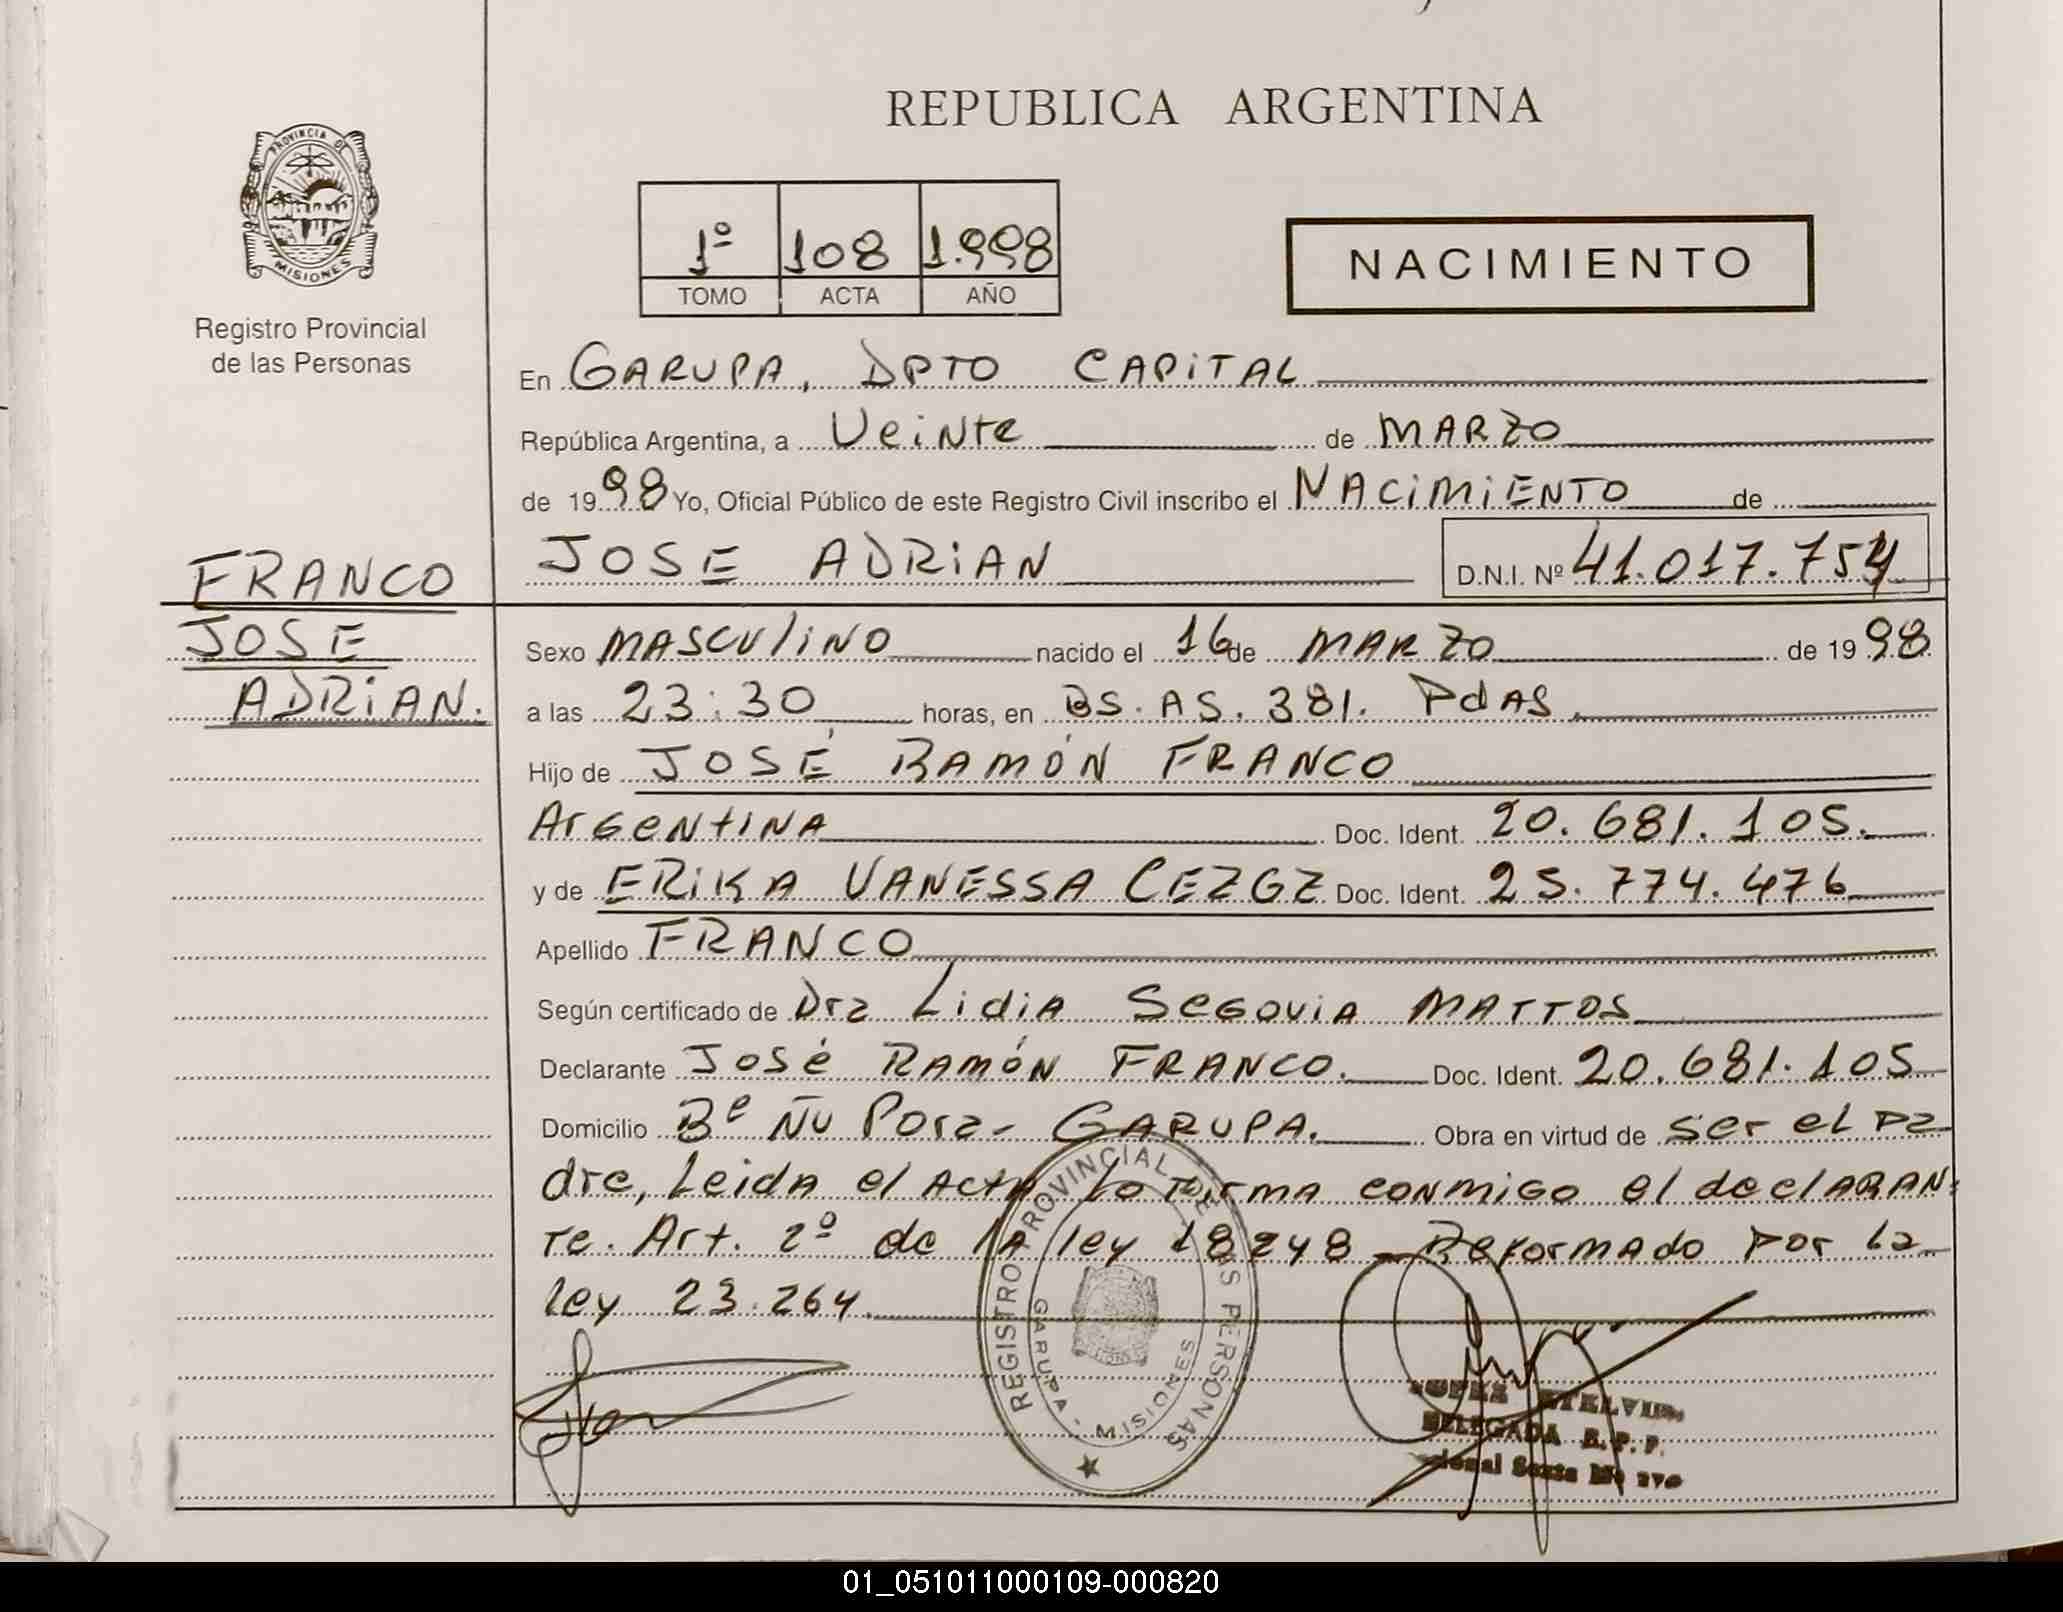 REPUBLICA ARGENTINA
PROVINCIA DE
MISIONES
Registro Provincial
de las Personas
1º 108 1.998
TOMO ACTA AÑO
NACIMIENTO
En GARUPA, DPTO CAPITAL
República Argentina, a Veinte de MARZO
de 1998 Yo, Oficial Público de este Registro Civil inscribo el NACIMIENTO de
JOSE ADRIAN D.N.I. Nº 41.017.754
FRANCO
JOSE
ADRIAN.
Sexo MASCULINO nacido el 16 de MARZO de 1998
a las 23:30 horas, en BS. AS. 381. PdAS.
Hijo de JOSÉ RAMÓN FRANCO
ArGeNtINA Doc. Ident. 20.681.105.
y de ERIKA VANESSA CEZGZ Doc. Ident. 25.774.476
Apellido FRANCO
Según certificado de Dra Lidia Segovia MATTOS
Declarante José RAMÓN FRANCO. Doc. Ident. 20.681.105
Domicilio Bº Ñu Pora - GARUPA. Obra en virtud de ser el pa
dre, Leida el Acta Lo Firma conmigo el declARAN-
te. Art. 2º de la ley 18248 - Reformado por la
ley 23.264.
REGISTRO PROVINCIAL DE LAS PERSONAS
GARUPA - MISIONES
DELEGADA R.P.P.